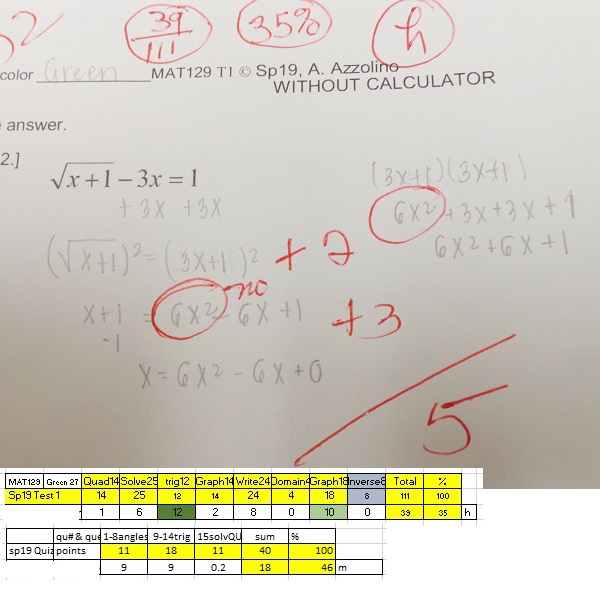 39/111 35% h
color Green MAT129 T1 © Sp19, A. Azzolino
WITHOUT CALCULATOR
answer.
2.] √x+1 − 3x = 1
+3x +3x
(√x+1)² = (3x+1)² +2
x+1 = 6x² - 6x +1 +3
no
-1
x = 6x² - 6x + 0
(3x+1)(3x+1)
6x² +3x+3x+1
6x²+6x+1
5
MAT129 Green 27 Quad14 Solve25 trig12 Graph14 Write24 Domain4 Graph18 Inverse8 Total %
Sp19 Test 1 14 25 12 14 24 4 18 8 111 100
1 6 12 2 8 0 10 0 39 35 h
qu# & que 1-8angles 9-14trig 15solvQU sum %
sp19 Quiz points 11 18 11 40 100
9 9 0.2 18 46 m